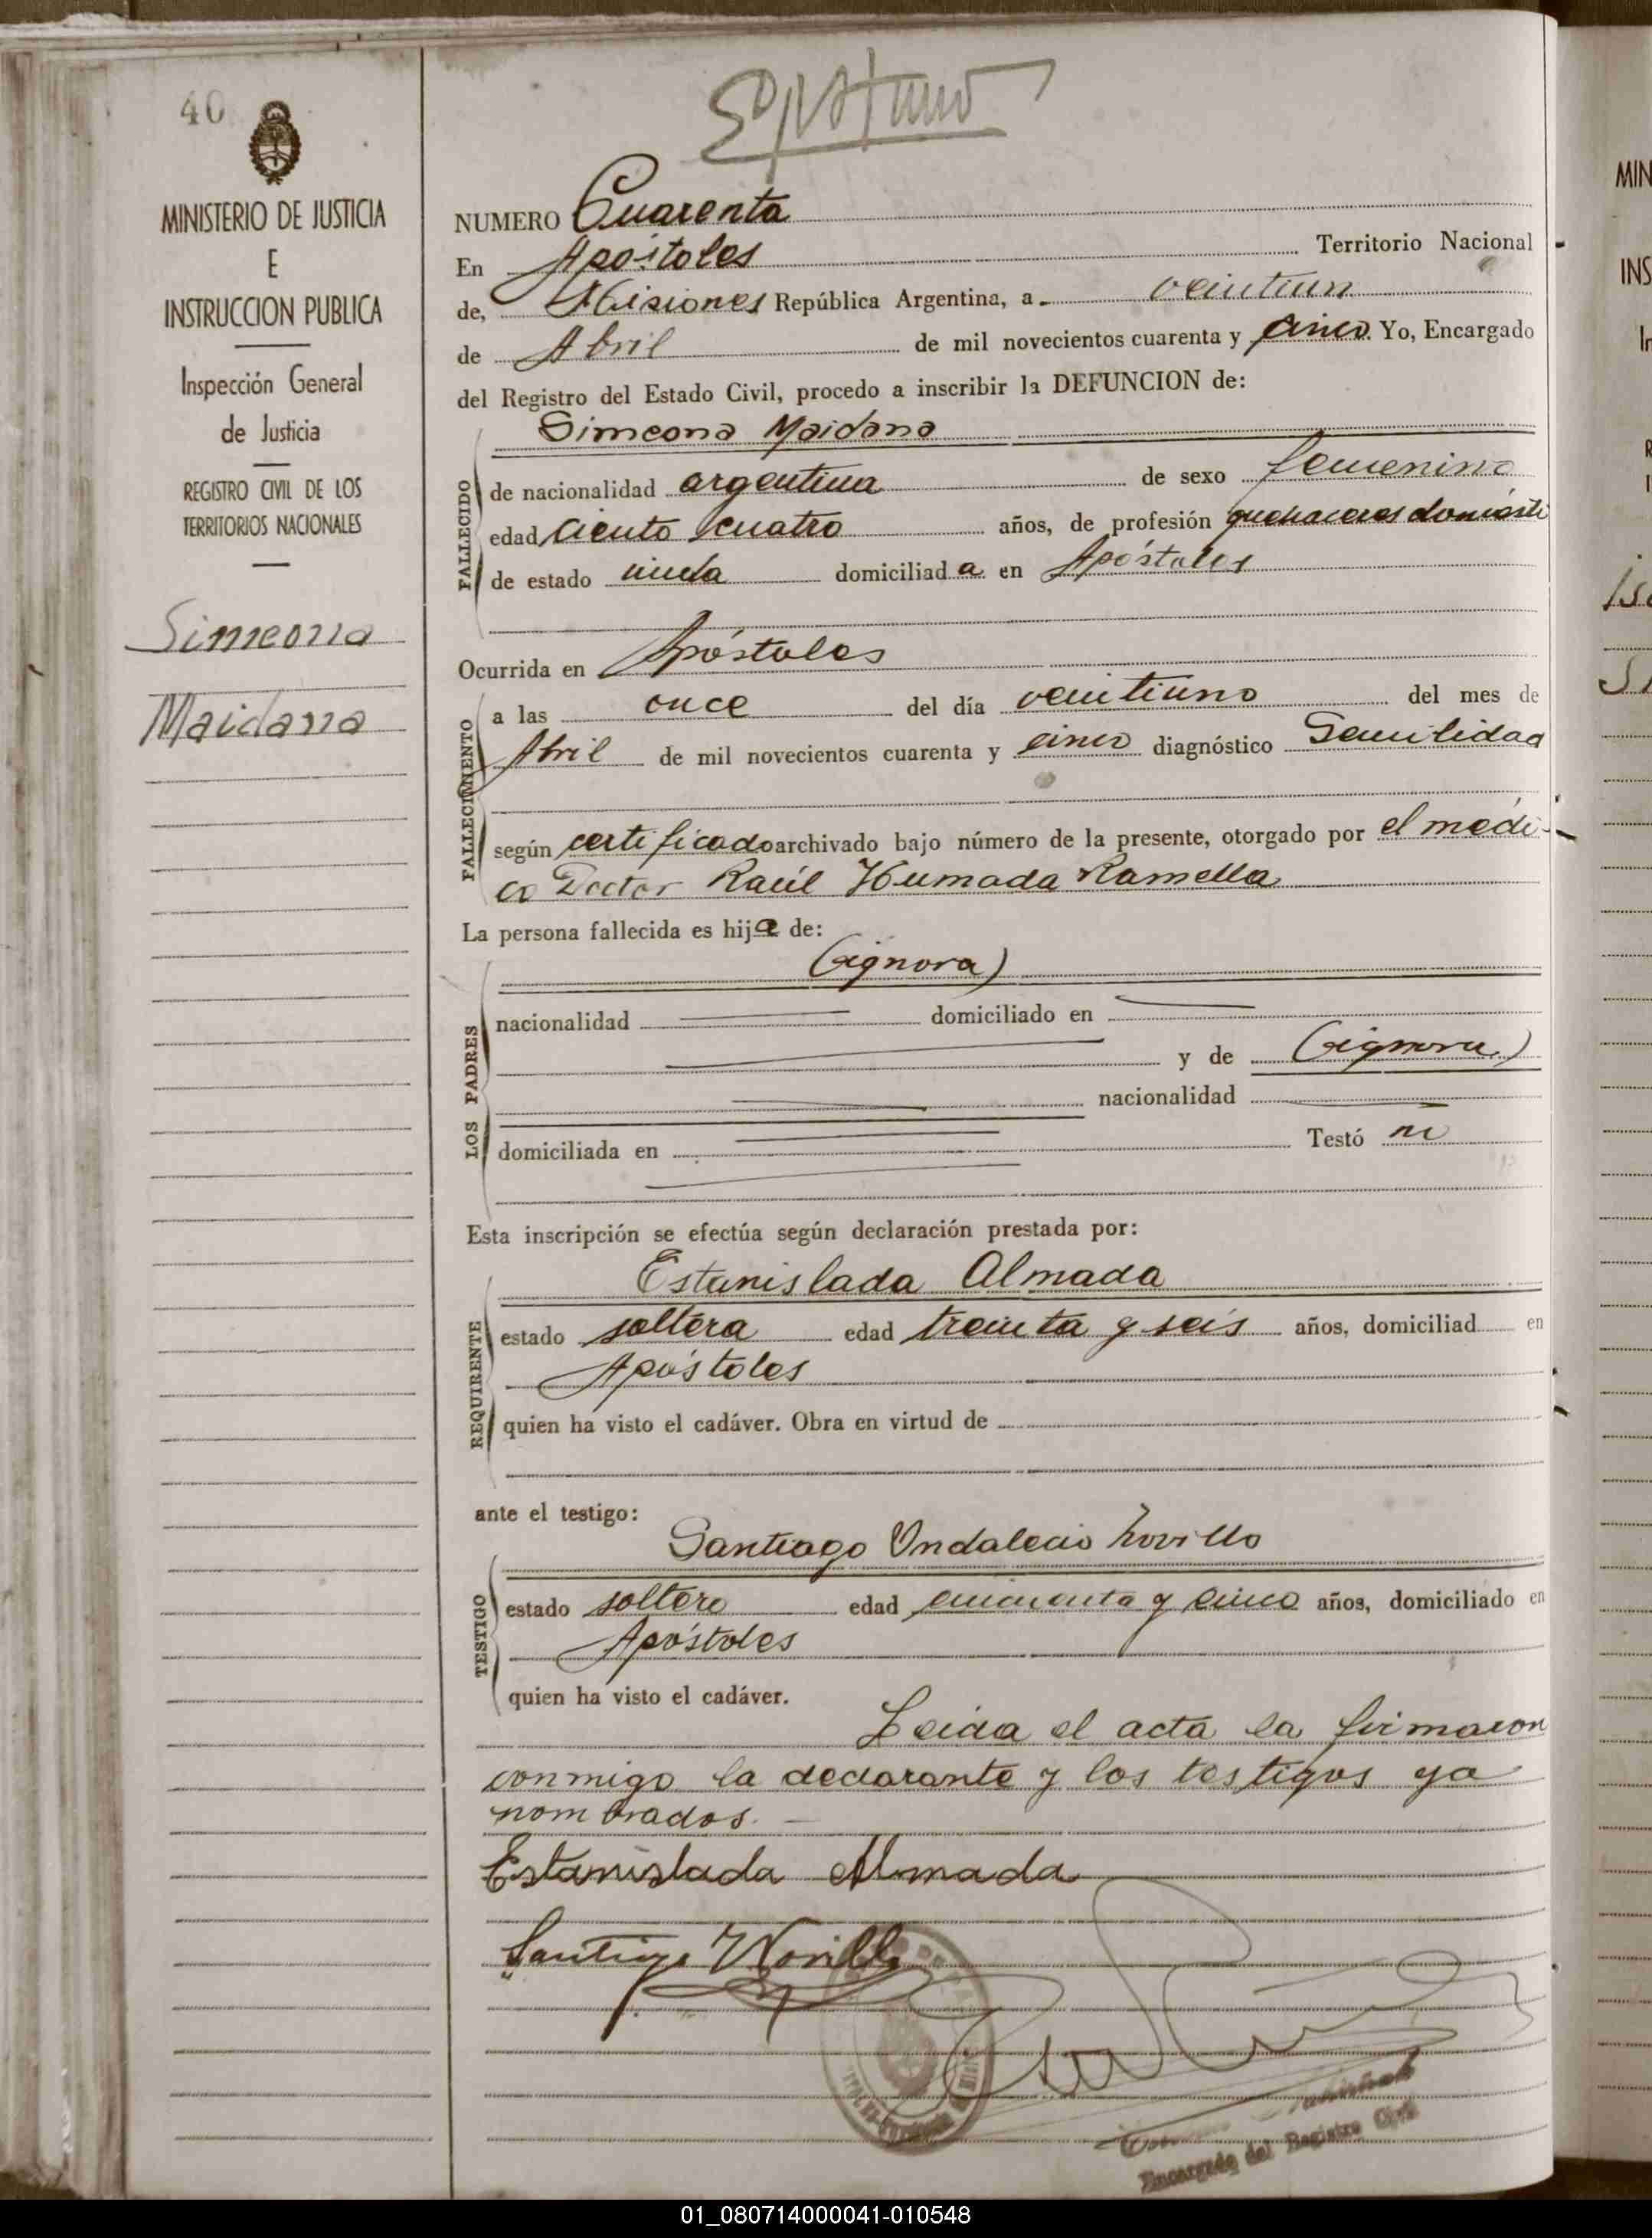 40
MINISTERIO DE JUSTICIA
E
INSTRUCCION PUBLICA
Inspección General
de Justicia
REGISTRO CIVIL DE LOS
TERRITORIOS NACIONALES
Simeona
Maidana
NUMERO Cuarenta
En Apóstoles Territorio Nacional
de, Misiones República Argentina, a veintiun
de Abril de mil novecientos cuarenta y cinco. Yo, Encargado
del Registro del Estado Civil, procedo a inscribir la DEFUNCION de:
Simeona Maidana
FALLECIDO
de nacionalidad argentina de sexo femenino
edad ciento cuatro años, de profesión quehaceres domésti
de estado viuda domiciliada en Apóstoles
Ocurrida en Apóstoles
FALLECIMIENTO
a las once del día veintiuno del mes de
Abril de mil novecientos cuarenta y cinco diagnóstico Senilidad
según certificado archivado bajo número de la presente, otorgado por el médi-
co Doctor Raúl Humada Ramella
La persona fallecida es hija de:
LOS PADRES
(ignora)
nacionalidad domiciliado en
y de (ignora)
nacionalidad
domiciliada en Testó no
Esta inscripción se efectúa según declaración prestada por:
REQUIRENTE
Estanislada Almada
estado soltera edad treinta y seis años, domiciliad en
Apóstoles
quien ha visto el cadáver. Obra en virtud de
ante el testigo:
TESTIGO
Santiago Indalecio
estado soltero edad cincuenta y cinco años, domiciliado en
Apóstoles
quien ha visto el cadáver.
Leida el acta la firmaron
conmigo la declarante y los testigos ya
nombrados.—
Estanislada Almada
Santiago
Encargado del Registro Civil
01_080714000041-010548